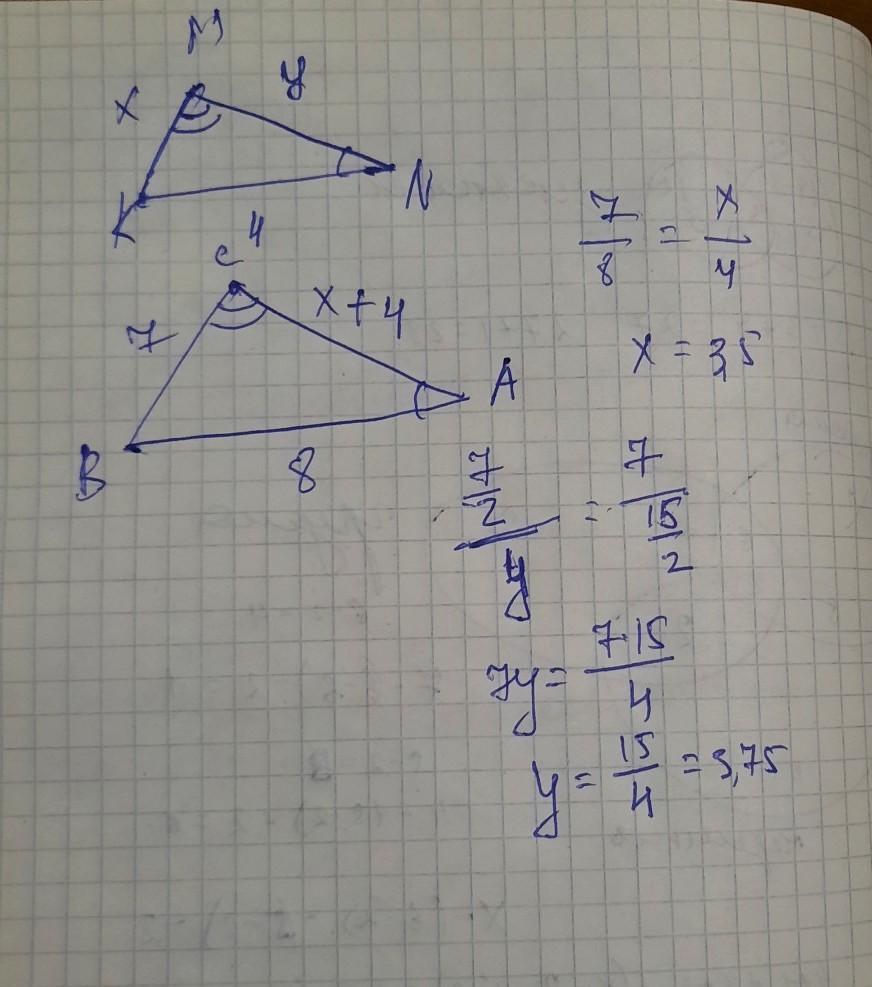 M
x y
K N
4
C
7 x+4
A
B 8
7/8 = x/4
x = 3,5
7/2 / y = 7 / 15/2
7y = 7·15/4
y = 15/4 = 3,75